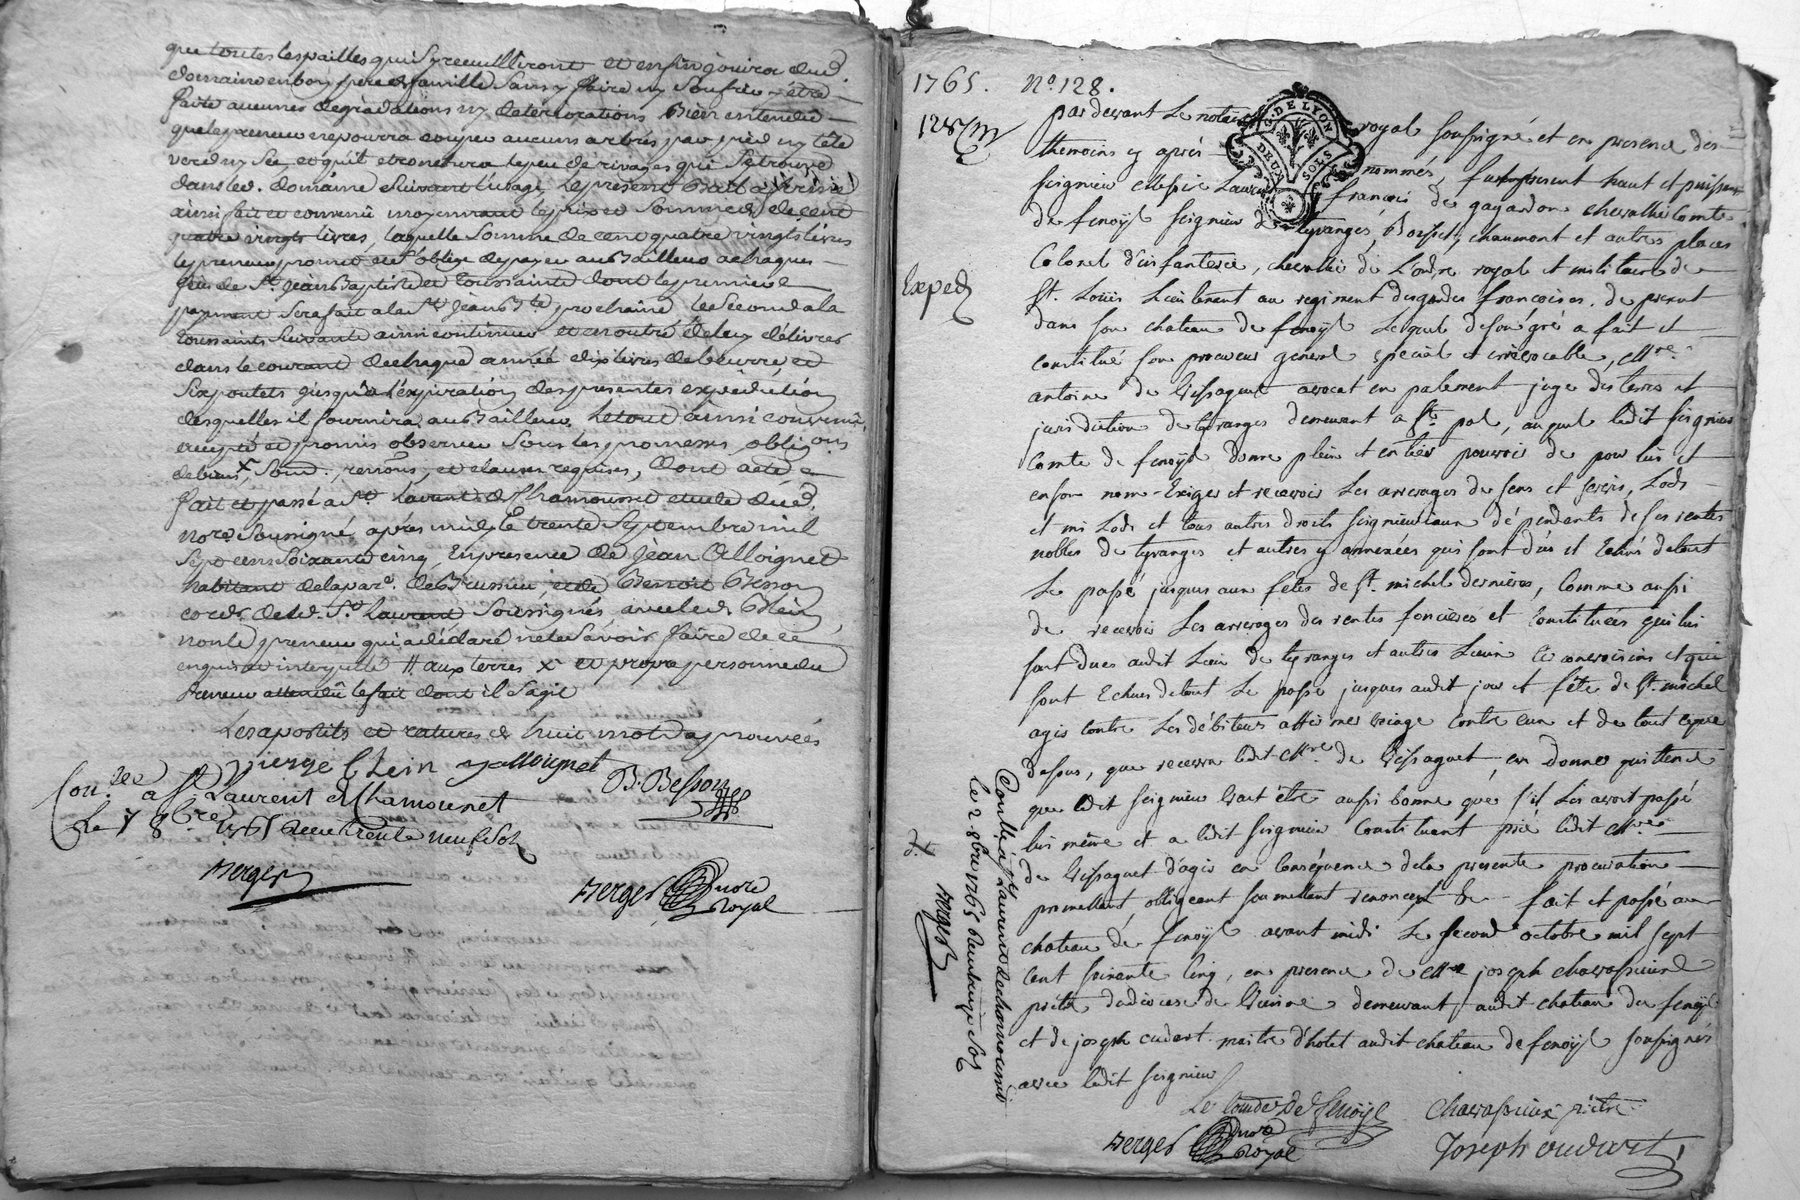 que toutes les pailles qui s'y recuilliront et enfin jouira dud.
domaine en bon pere de famille sans y faire ny soufrir être
faite aucunes degradations ny deteriorations Bien entendu
que le preneur ne pourra couper aucuns arbres par pied ny tête
verd ny sec, et qu'il etronetra le peu de rivages qui se trouve
dans led. domaine suivant l'usage, le present Bail à ferme
ainsi fait et convenu moyennant le prix et somme de cent
quatre vingts livres, laquelle somme de cent quatre vingts livres
le preneur promet et s'oblige de payer au Bailleur a chaques
fêtes de St. Jean Baptiste et Toussaints dont le premier
payement sera fait a la St Jean Bte prochaine le second a la
toussaints suivante ainsi continuer et en outre de luy délivrer
dans le courant de chaque année dix livres de beurre, et
six poulets jusqu'a l'expiration des presentes expedition
desquelles il fournira au Bailleur le tout ainsi convenu,
accepté et promis observer sous les promesses, obligons
de biens, x soum: renons, et clauses requises, dont acte
fait et passé a St Laurent de Chamousset etude dud.
nore. soussigné, après midy le trente septembre mil
sept cens soixante cinq, En presence de Jean Alloignet
habitant de la pare. de Brussieu, et de Benoit Besson
cordr. dud. St. Laurent soussignés avec led. Blein,
non le preneur qui a déclaré ne le savoir faire de ce
enquis et interpellé # aux terres x et propre personne du
Preneur attendu le fait dont il s'agit
Les apostils et ratures de huit mots approuvées
pierge Blein yalloignet
B. Besson
Con.lée a St Laurent de Chamousset
Le 7 8bre 1765 Reçu trente neuf sols
Verger
Verger nore
Royal
1765. No. 128.
128
par devant Le notaire royal soussigné et en presence des
G. DE LYON
DEUX SOLS
themoins cy après nommés, fut present haut et puissant
seigneur Messire Laurent françois de gagardon chevallier Comte
de fenoÿl seigneur de tyranges, Boisset, chaumont et autres places
Colonel d'infanterie, chevalier de L'ordre royal et militaire de
Exped
St. Louis Lieutenant au regiment des gardes françoises. de present
dans son chateau de fenoÿl Lequel de son gré a fait et
constitué son procureur general special et irrévocable, Mre.
antoine de Vissaguet avocat en parlement juge des terres et
jurisdiction de tyranges demeurant a St. pal, auquel ledit seigneur
Comte de fenoÿl donne plein et entier pouvoir de pour lui et
en son nom Exiger et recevoir Les arrerages de sens et servis, Lods
et mi Lods et tous autres droits seigneuriaux dépendants de ses rentes
nobles de tyranges et autres y annexées qui sont dûs et Echus de tout
Le passé jusques aux fêtes de St. michel dernières, Comme aussi
de recevoir Les arrerages des rentes foncières et Constituées qui lui
sont dues audit Lieu de tyranges et autres Lieux circonvoisins et qui
sont Echues de tout Le passé jusques audit jour et fête de St. michel
agir contre Les débiteurs affirmer voiage Contre eux et de tout ce que
dessus, que recevra ledit Mre de Vissaguet, en donner quittance
que ledit seigneur veut être aussi bonne que s'il Les avoit passé
lui même et a ledit seigneur Constituant prié ledit Mre.
de Vissaguet d'agir en Conséquence de la presente procuration
promettant, obligeant soumettant renonçant &c fait et passé au
chateau de fenoÿl avant midi Le second octobre mil sept
cent soixante Cinq, en presence de Mre joseph chavassieux
prêtre du diocèse de Vienne demeurant audit chateau de fenoÿl
et de joseph oudart maître d'hotel audit chateau de fenoÿl soussignés
avec ledit seigneur
Conllé a St Laurent de chamousset
le 2 8bre 1765 Reçu treize sols
Verger
Le Comte De Fenoÿl Chavassieux prêtre
Verger nore
Royal
Joseph oudart